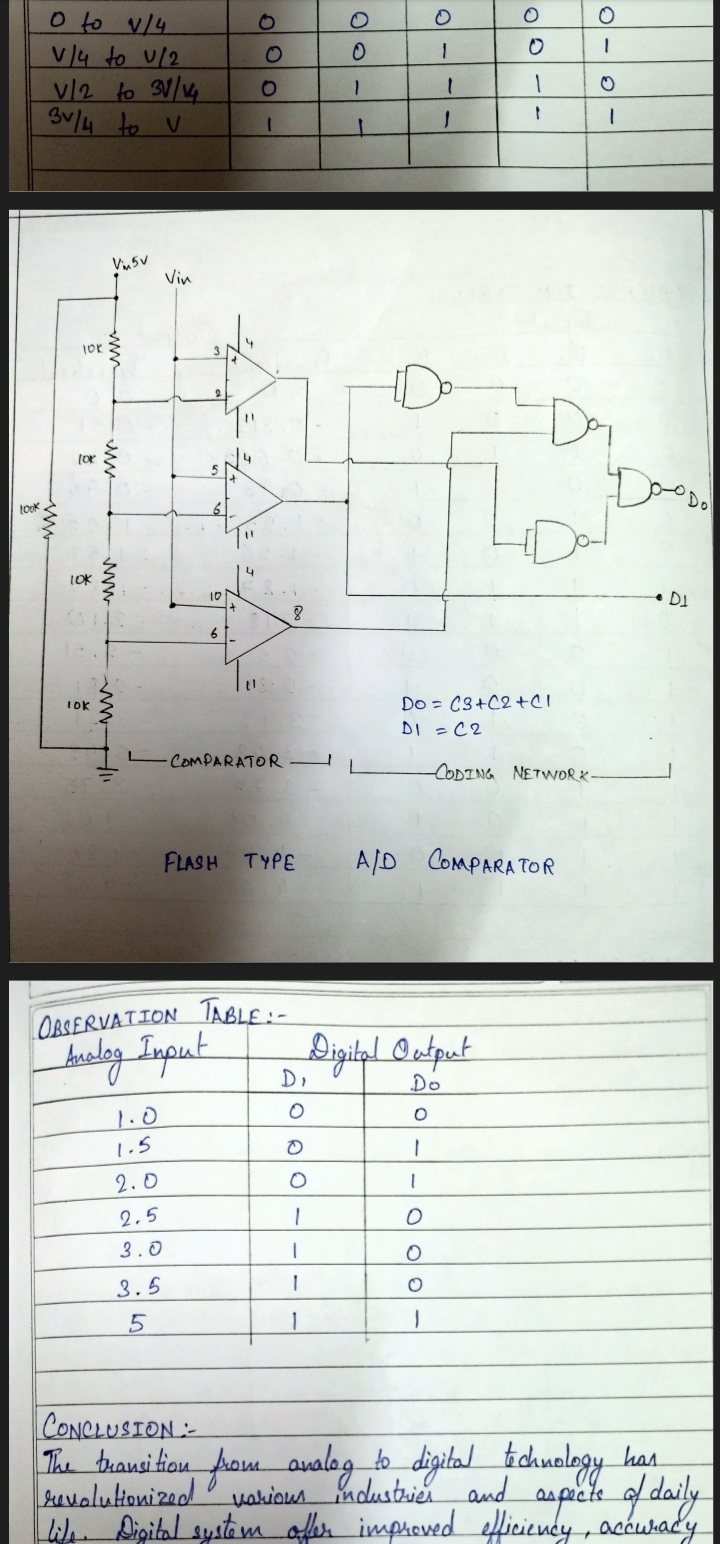 0 to V/4 0 0 0 0 0
V/4 to V/2 0 0 1 0 1
V/2 to 3V/V4 0 1 1 1 0
3V/4 to V 1 1 1 1 1
Vin5V
Vin
10K
3
+
4
2
-
11
10K
5
+
4
6
-
11
100K
Do
10K
10
+
4
8
6
-
11
D1
10K
DO = C3+C2+C1
D1 = C2
COMPARATOR
CODING NETWORK
FLASH TYPE A/D COMPARATOR
OBSERVATION TABLE:-
Analog Input Digital Output
D1 Do
1.0 0 0
1.5 0 1
2.0 0 1
2.5 1 0
3.0 1 0
3.5 1 0
5 1 1
CONCLUSION :-
The transition from analog to digital technology has
revolutionized various industries and aspects of daily
life. Digital system offer improved efficiency, accuracy